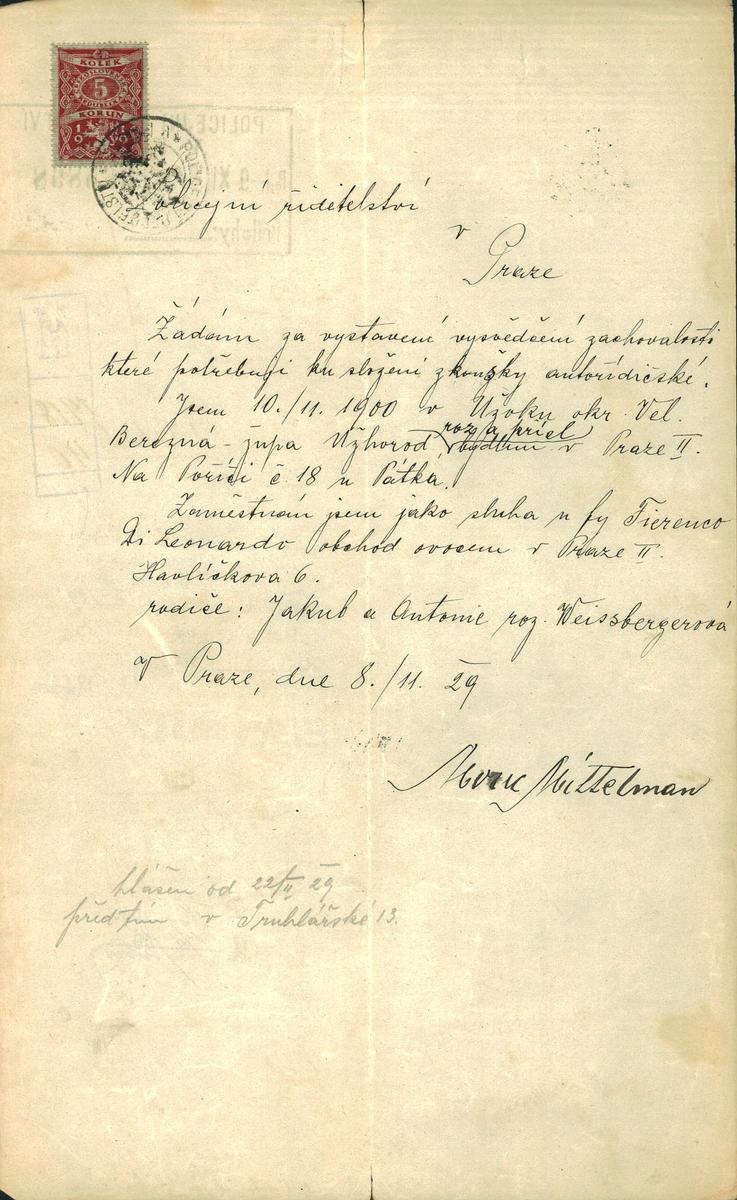 KOLEK
5
KORUN
1919
řiditelství
v
Praze
Žádám za vystavení vysvědčení zachovalosti
které potřebuji ku složení zkoušky autořidičské.
Jsem 10./11. 1900 v Užoku okr. Vel.
roz. a přísl
Berezná - župa Užhorod, bydlím v Praze II.
Na Poříčí č 18 u Pátka.
Zaměstnán jsem jako sluha u fy Fierenco
Di Leonardo obchod ovocem v Praze II.
Havlíčkova 6.
rodiče: Jakub a Antonie roz. Weissbergerová
V Praze, dne 8./11. 29
Mittelman
hlášen od 22/II 29
předtím v Truhlářské 13.